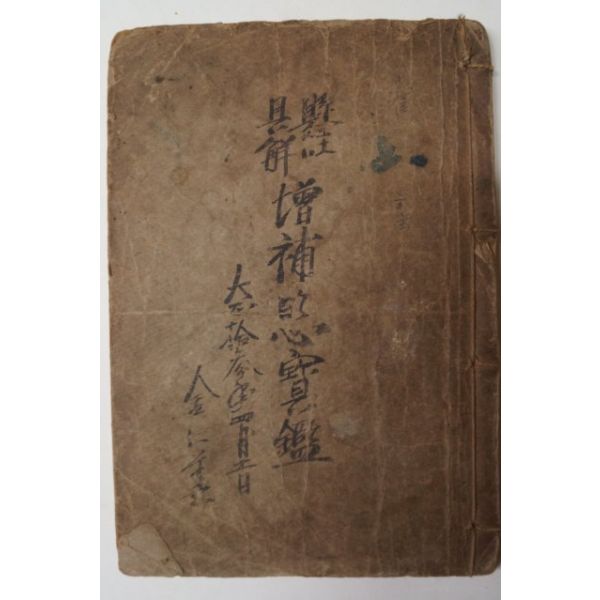 懸吐
具解
增補明心寶鑑
大正拾叁年四月日
金仁